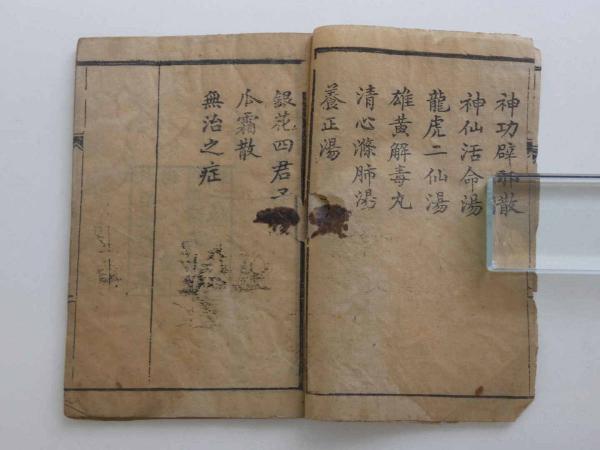 神功辟邪散
神仙活命湯
龍虎二仙湯
雄黃解毒丸
清心滌肺湯
養正湯
銀花四君子
瓜霜散
無治之症